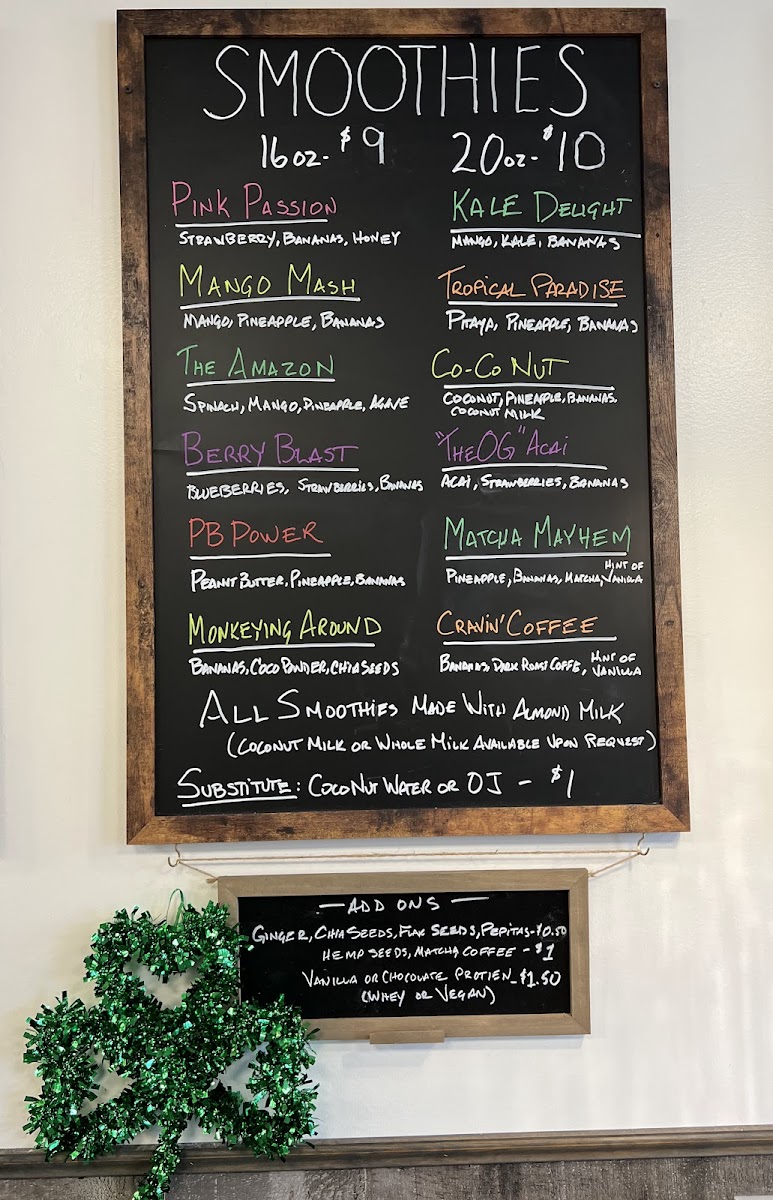 SMOOTHIES
16oz- $9
20oz- $10
PINK PASSION
STRAWBERRY, BANANAS, HONEY
MANGO MASH
MANGO, PINEAPPLE, BANANAS
THE AMAZON
SPINACH, MANGO, PINEAPPLE, AGAVE
BERRY BLAST
BLUEBERRIES, STRAWBERRIES, BANANAS
PB POWER
PEANUT BUTTER, PINEAPPLE, BANANAS
MONKEYING AROUND
BANANAS, COCO POWDER, CHIA SEEDS
KALE DELIGHT
MANGO, KALE, BANANAS
TROPICAL PARADISE
PITAYA, PINEAPPLE, BANANAS
CO-CO NUT
COCONUT, PINEAPPLE, BANANAS.
COCONUT MILK
"THE OG" ACAI
ACAI, STRAWBERRIES, BANANAS
MATCHA MAYHEM
PINEAPPLE, BANANAS, MATCHA, HINT OF VANILLA
CRAVIN' COFFEE
BANANAS, DARK ROAST COFFE, HINT OF VANILLA
ALL SMOOTHIES MADE WITH ALMOND MILK
(COCONUT MILK OR WHOLE MILK AVAILABLE UPON REQUEST)
SUBSTITUTE: COCONUT WATER OR OJ - $1
- ADD ONS -
GINGER, CHIA SEEDS, FLAX SEEDS, PEPITAS-$0.50
HEMP SEEDS, MATCHA COFFEE - $1
VANILLA OR CHOCOLATE PROTIEN - $1.50
(WHEY OR VEGAN)